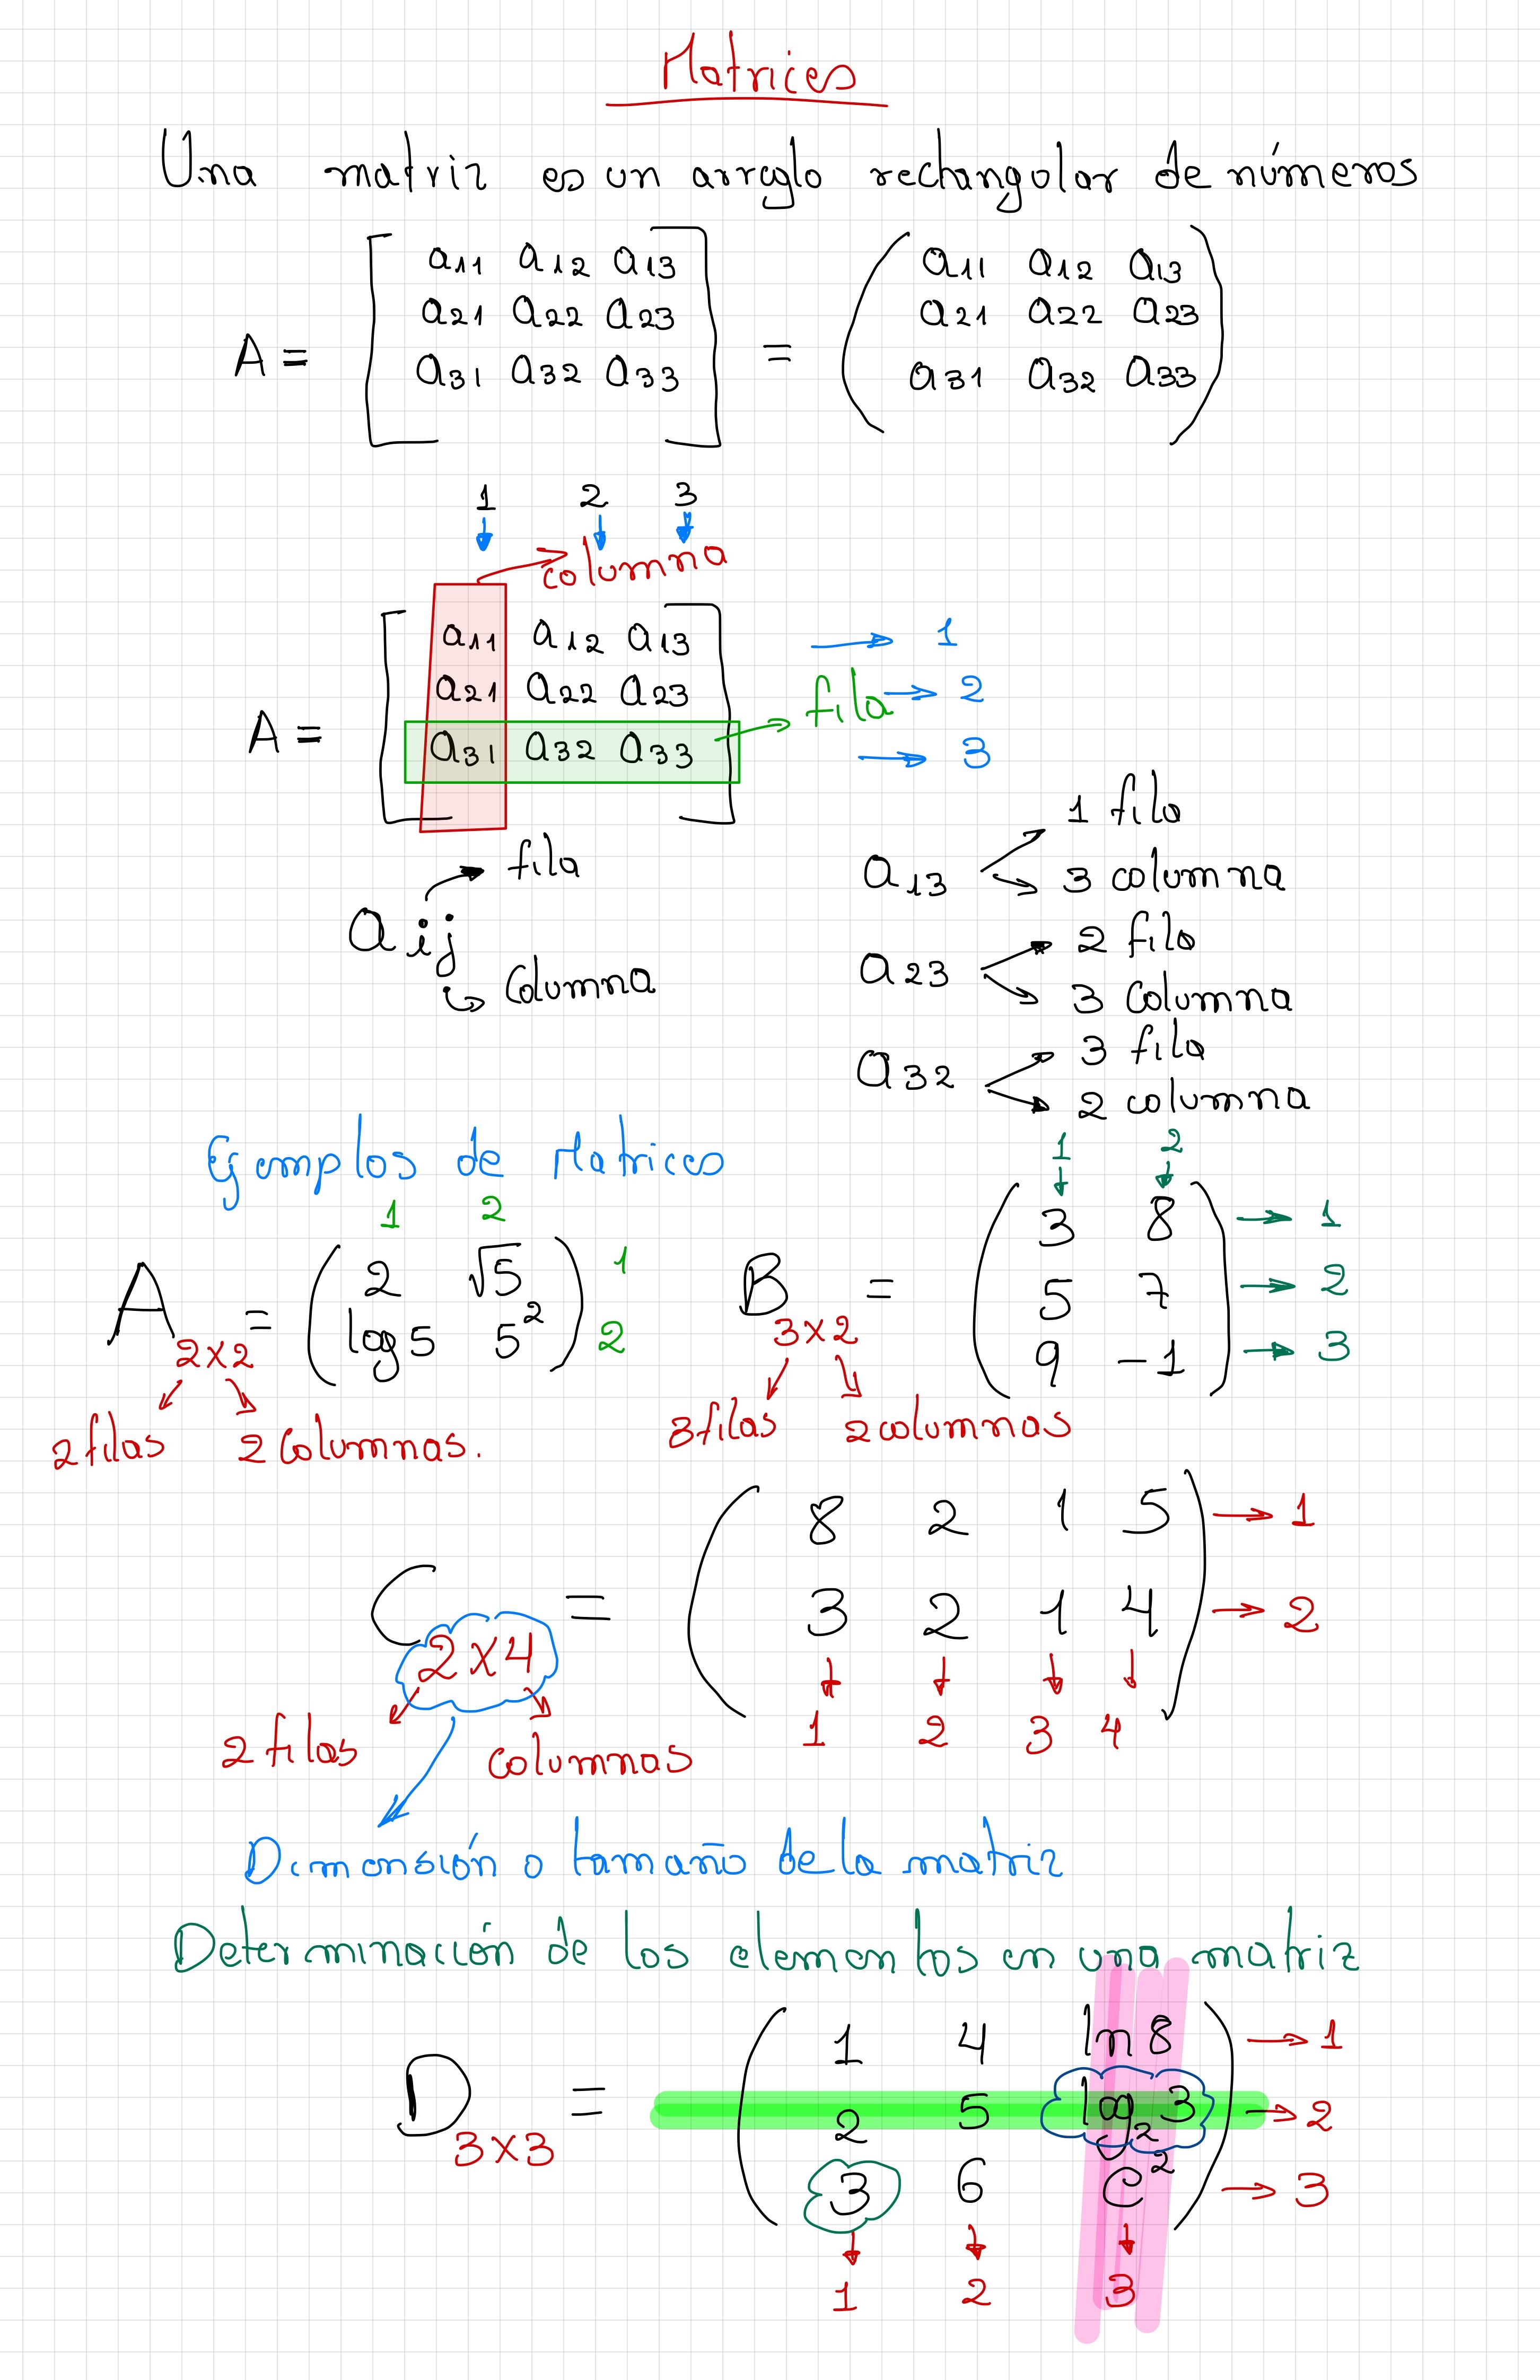 Matrices
Una matriz es un arreglo rectangular de números
A = [ a11 a12 a13 ] = ( a11 a12 a13 )
a21 a22 a23 a21 a22 a23
a31 a32 a33 a31 a32 a33
1 2 3
columna
a11 a12 a13 → 1
a21 a22 a23 fila → 2
A = a31 a32 a33 → 3
aij
fila
columna
a13
1 fila
3 columna
a23
2 fila
3 columna
a32
3 fila
2 columna
Ejemplos de Matrices
1 2
A 2x2 = ( 2 √5 ) 1
log 5 5² 2
2 filas 2 columnas.
1 2
B 3x2 = ( 3 8 ) → 1
5 7 → 2
9 -1 → 3
3 filas 2 columnas
8 2 1 5 → 1
C 2x4 = 3 2 1 4 → 2
1 2 3 4
2 filas columnas
Dimensión o tamaño de la matriz
Determinación de los elementos en una matriz
1 4 ln 8 → 1
D 3x3 = 2 5 log₂ 3 → 2
3 6 e² → 3
1 2 3